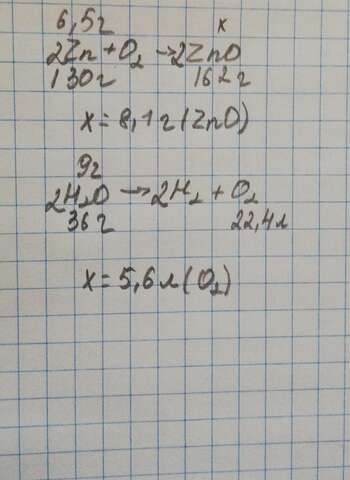 6,5г x
2Zn + O₂ → 2ZnO
130г 162г
x = 8,1 г (ZnO)
9г
2H₂O → 2H₂ + O₂
36 г 22,4л
x = 5,6 л (O₂)